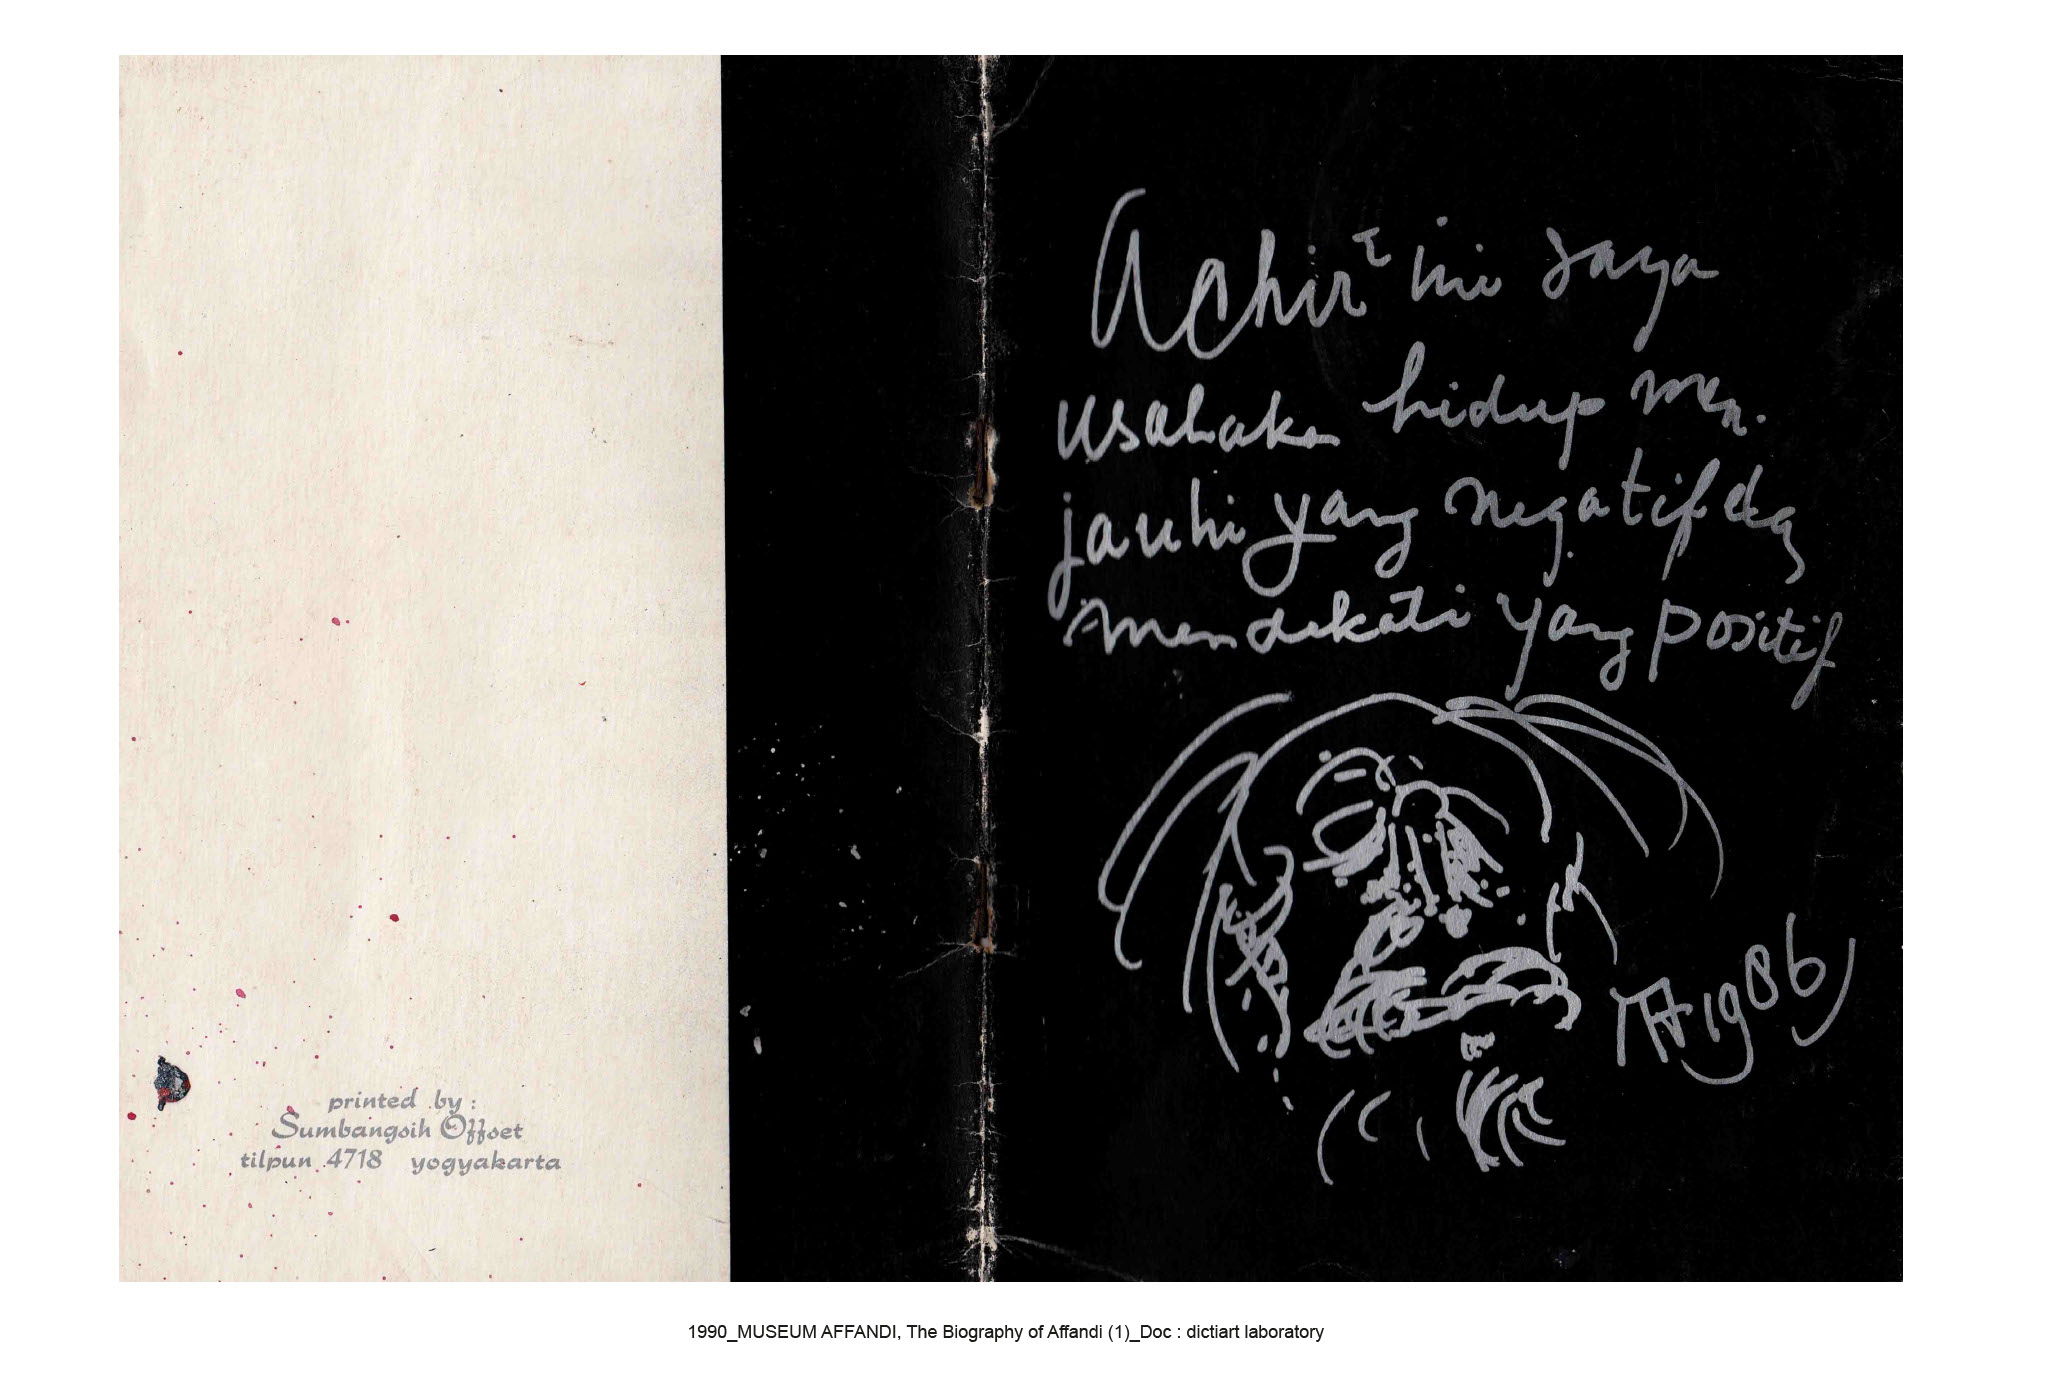 printed by :
Sumbangsih Offset
tilpun 4718 yogyakarta
Achir² ini saya
usahaka hidup men.
jauhi yang negatif dg
mendekati yang positif
1986
1990_MUSEUM AFFANDI, The Biography of Affandi (1)_Doc : dictiart laboratory